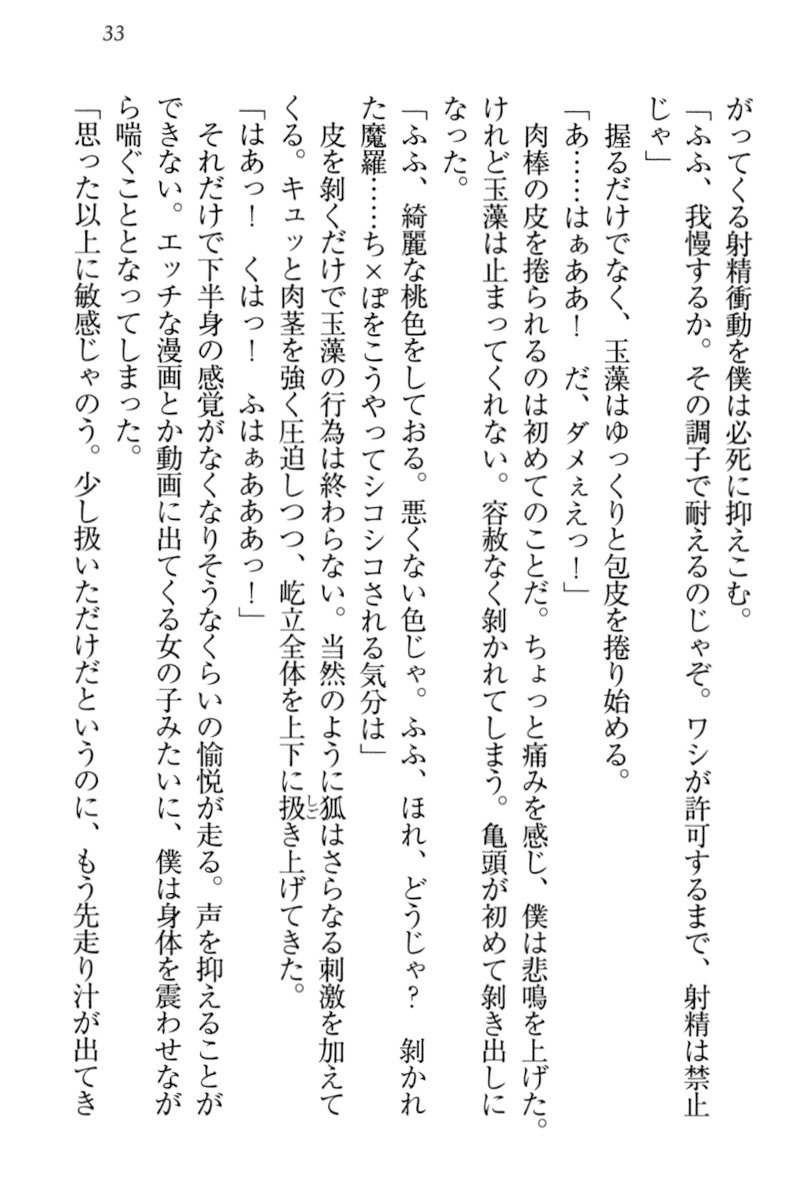 33
がってくる射精衝動を僕は必死に抑えこむ。
「ふふ、我慢するか。その調子で耐えるのじゃぞ。ワシが許可するまで、射精は禁止
じゃ」
握るだけでなく、玉藻はゆっくりと包皮を捲り始める。
「あ……はぁああ！　だ、ダメぇえっ！」
肉棒の皮を捲られるのは初めてのことだ。ちょっと痛みを感じ、僕は悲鳴を上げた。
けれど玉藻は止まってくれない。容赦なく剝かれてしまう。亀頭が初めて剝き出しに
なった。
「ふふ、綺麗な桃色をしておる。悪くない色じゃ。ふふ、ほれ、どうじゃ？　剝かれ
た魔羅……ち×ぽをこうやってシコシコされる気分は」
皮を剝くだけで玉藻の行為は終わらない。当然のように狐はさらなる刺激を加えて
くる。キュッと肉茎を強く圧迫しつつ、屹立全体を上下に扱き上げてきた。
しご
「はあっ！　くはっ！　ふはぁあああっ！」
それだけで下半身の感覚がなくなりそうなくらいの愉悦が走る。声を抑えることが
できない。エッチな漫画とか動画に出てくる女の子みたいに、僕は身体を震わせなが
ら喘ぐこととなってしまった。
「思った以上に敏感じゃのう。少し扱いただけだというのに、もう先走り汁が出てき